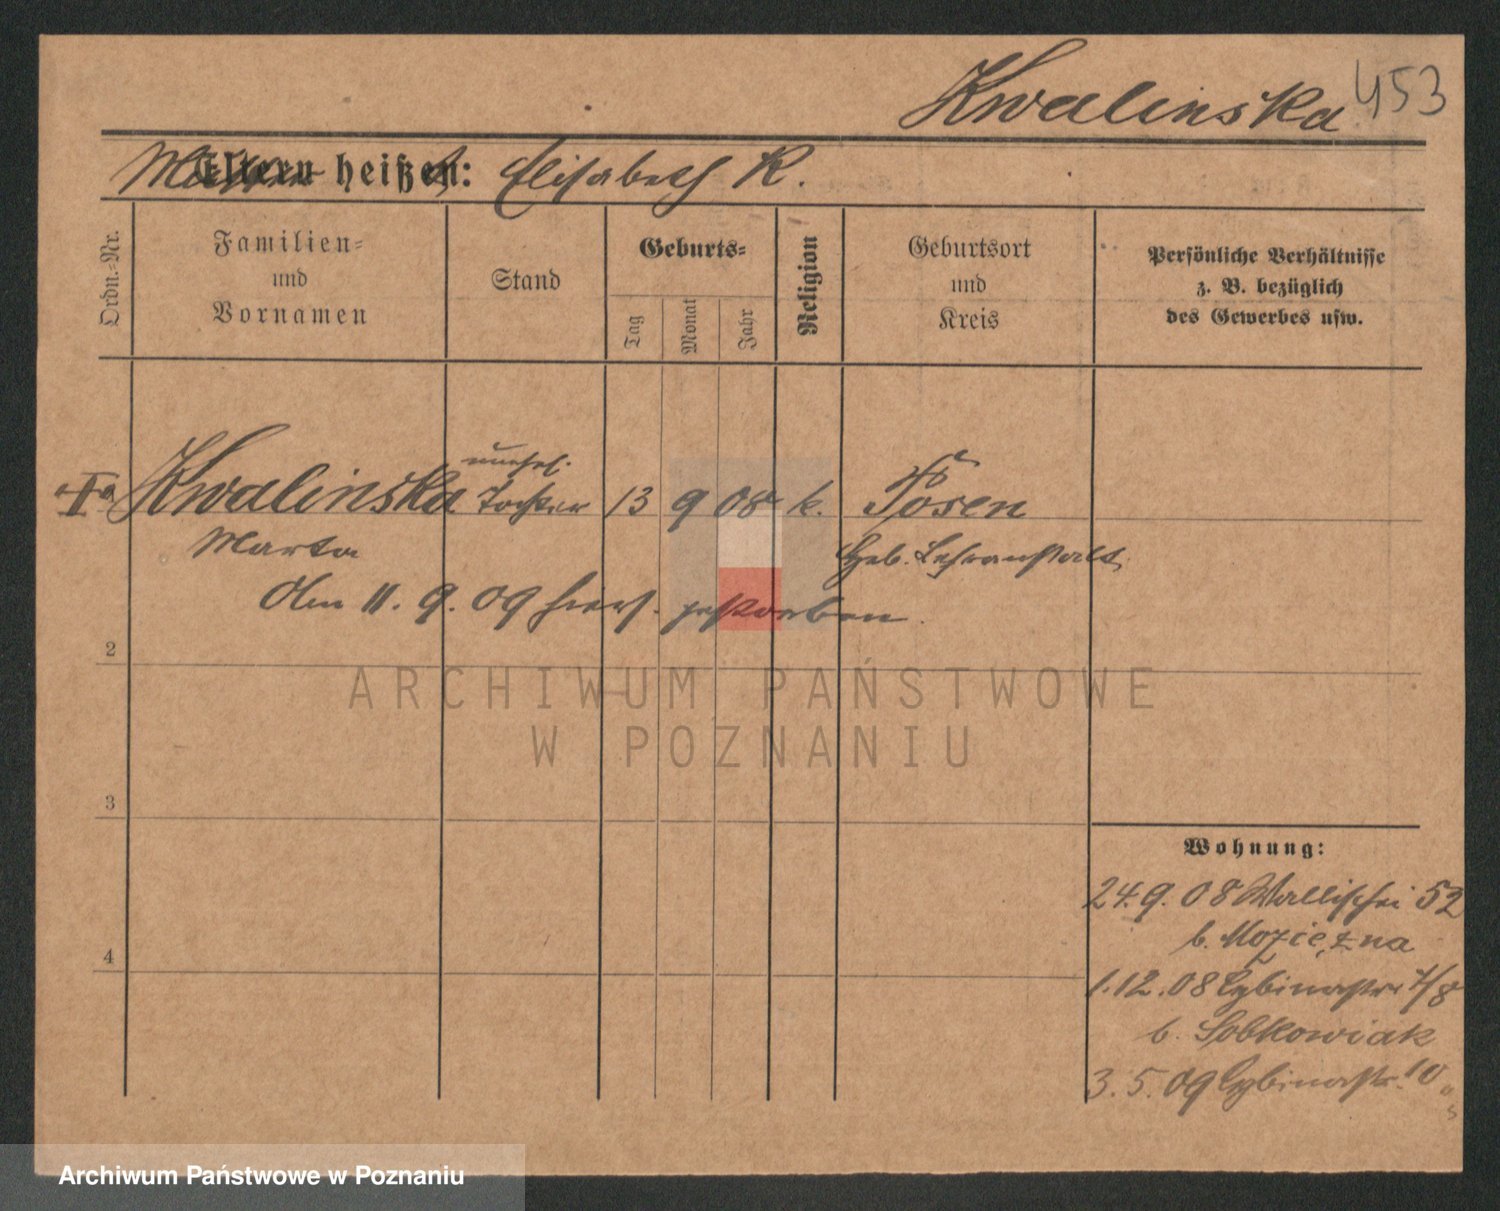 Kwalinska 453
Mutter
Eltern heißen: Elisabeth K.
Ordn.-Nr.
Familien-
und
Vornamen
Stand
Geburts-
Tag
Monat
Jahr
Religion
Geburtsort
und
Kreis
Persönliche Verhältnisse
z. B. bezüglich
des Gewerbes usw.
unehel.
Kwalinska Tochter 13 9 08 k. Posen
Marta Geb. Lehranstalt
Am 11. 9. 09 hiers. gestorben.
2
ARCHIWUM PAŃSTWOWE
W POZNANIU
3
Wohnung:
24. 9. 08 Wallischei 52
b. Mozieżna
4
1. 12. 08 Cybinastr. 7/8
b. Sobkowiak
3. 5. 09 Cybinastr. 10
Archiwum Państwowe w Poznaniu